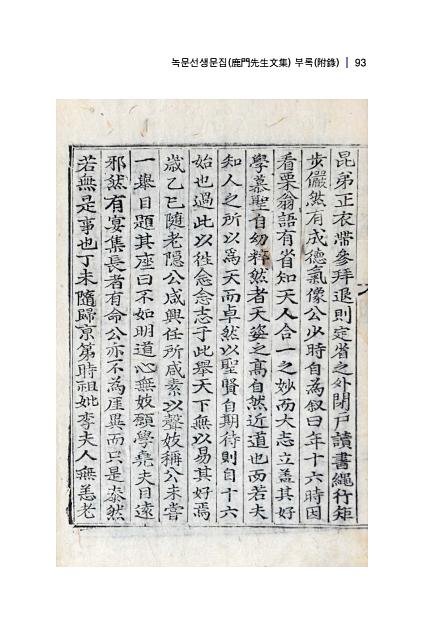 녹문선생문집(鹿門先生文集) 부록(附錄) | 93
昆弟正衣帶參拜退則定省之外閉戶讀書繩行矩
步儼然有成德氣像公少時自爲叙曰年十六時因
看栗翁語有省知天人合一之妙而大志立盖其好
學慕聖自幼粹然者天姿之高自然近道也而若夫
知人之所以爲天而卓然以聖賢自期待則自十六
始也過此以徃念念志于此擧天下無以易其好焉
歲乙巳隨老隱公咸興任所咸素以聲妓稱公未嘗
一擧目題其座曰不如明道心無妓願學堯夫目遠
邪然有宴集長者有命公亦不爲崖異而只是泰然
若無是事也丁未隨歸京第時祖妣李夫人無恙老